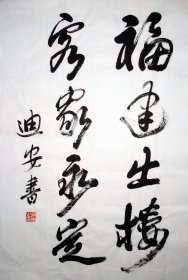 福建土楼
客家永定
迪安書